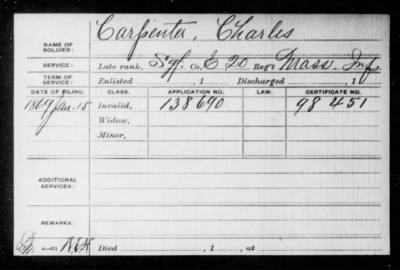 Carpenter, Charles
NAME OF SOLDIER:
SERVICE: Late rank, Sgt. Co. E 20 Reg't Mass. Inf.
TERM OF SERVICE: Enlisted , 1 Discharged , 1
DATE OF FILING. CLASS. APPLICATION NO. LAW. CERTIFICATE NO.
1869 Jan. 15 Invalid, 138690 98 451
Widow,
Minor,
ADDITIONAL SERVICES:
REMARKS:
Died , 1 , at